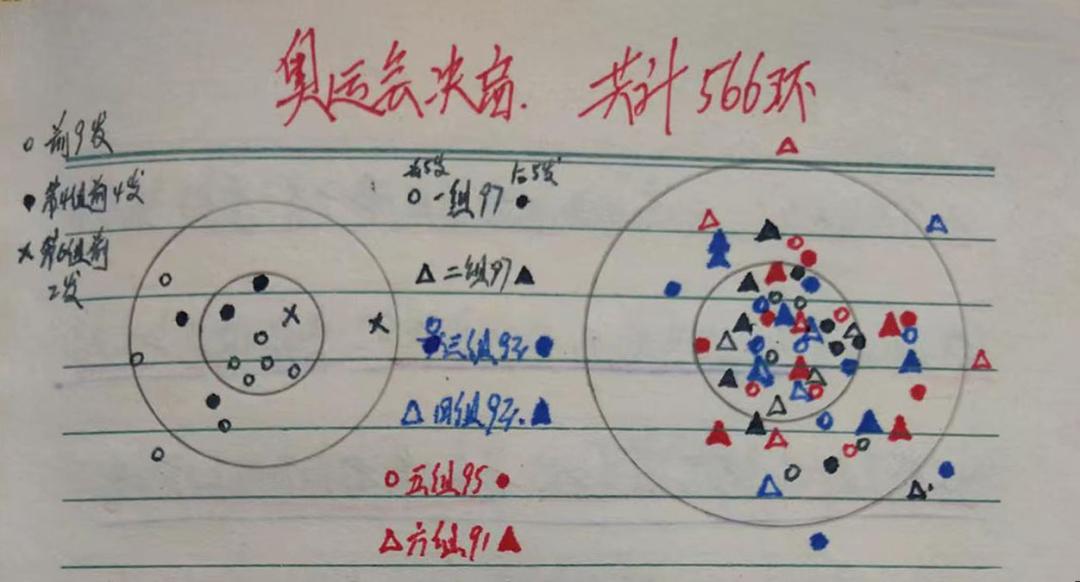 奥运会决赛. 共计566环
○ 前9发
● 第4组前4发
× 第6组前
2发
前5发 后5发
○ 一组97 ●
△ 二组97 ▲
三组93 ●
△ 四组93. ▲
○ 五组95 ●
△ 六组91 ▲